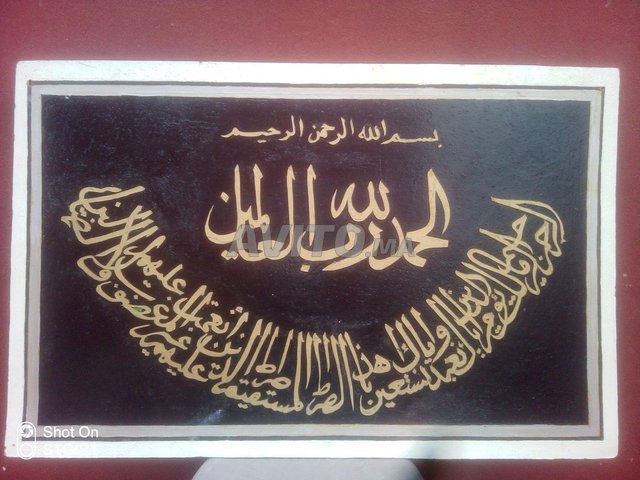 بسم الله الرحمن الرحيم
الحمد لله رب العالمين
الرحمن الرحيم مالك يوم الدين إياك نعبد وإياك نستعين اهدنا الصراط المستقيم صراط الذين أنعمت عليهم غير المغضوب عليهم ولا الضالين
AVITO.MA
Shot On